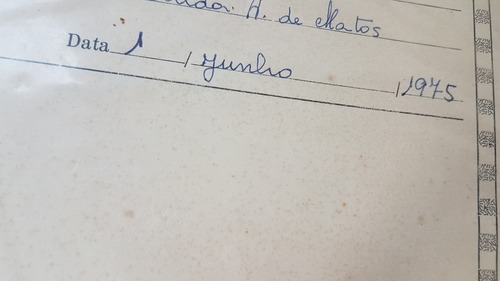 A. de Matos
Data 1 / Junho / 1975